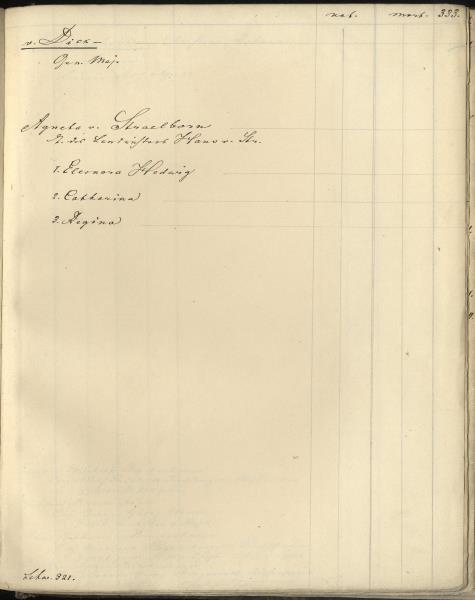 nat. mort. 333.
v. Dick –
Gen. Maj.
Agneta v. Straelborn
T. des Landrichters Hans v. Str.
1. Eleonora Hedwig
2. Catharina
3. Regina
321.